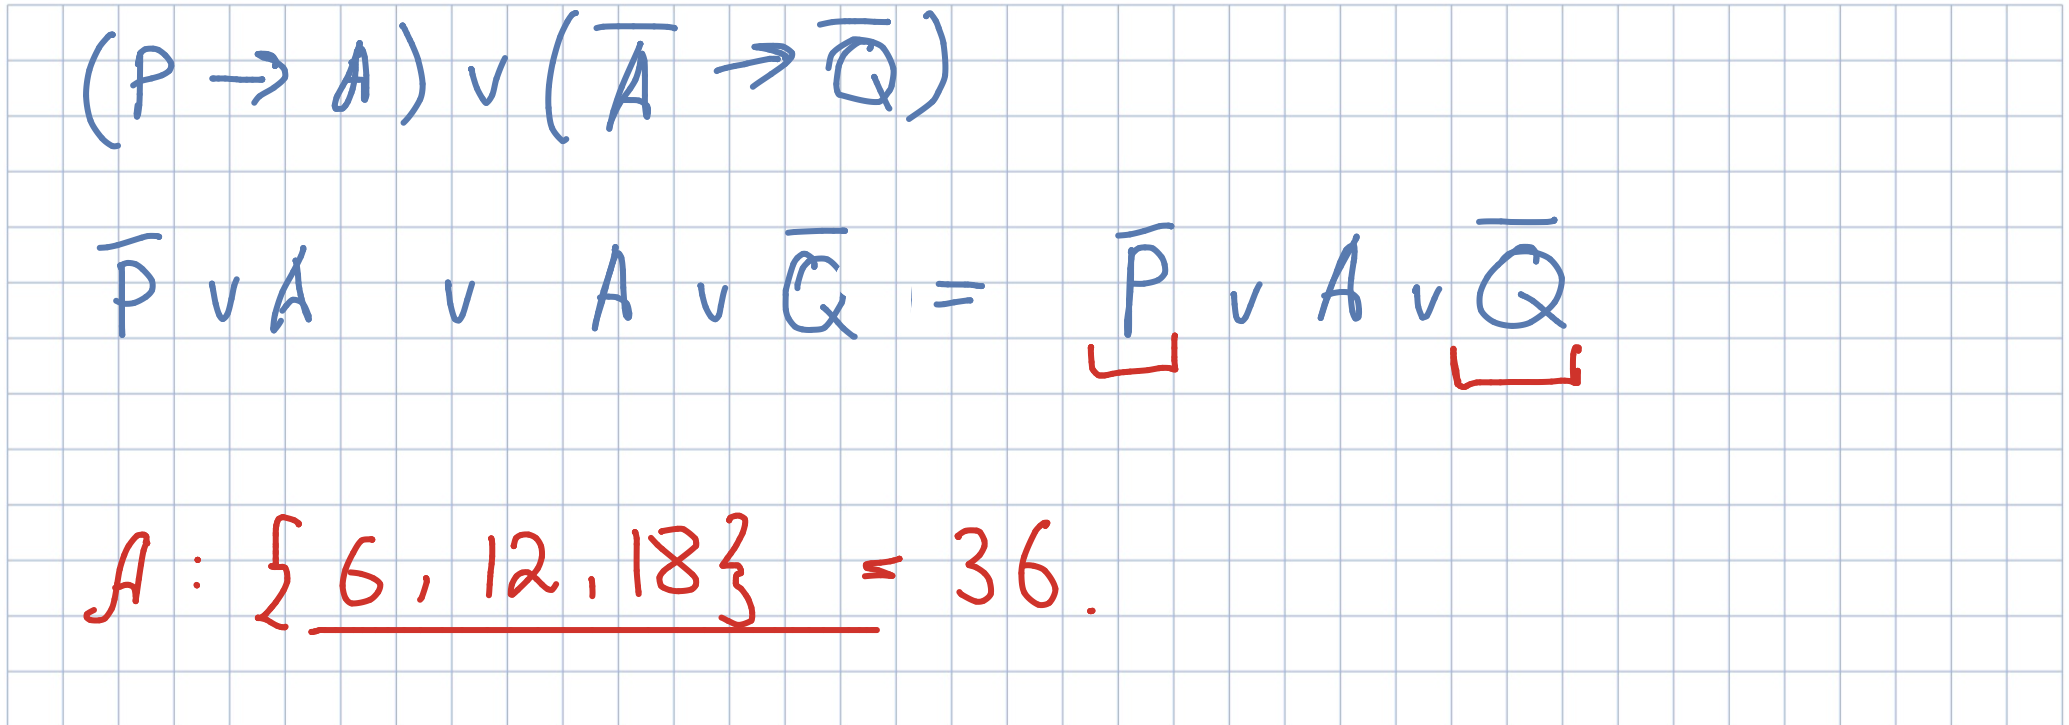 (P → A) ∨ (A̅ → Q̅)
P̅ ∨ A ∨ A ∨ Q̅ = P̅ ∨ A ∨ Q̅
A : {6, 12, 18} = 36.